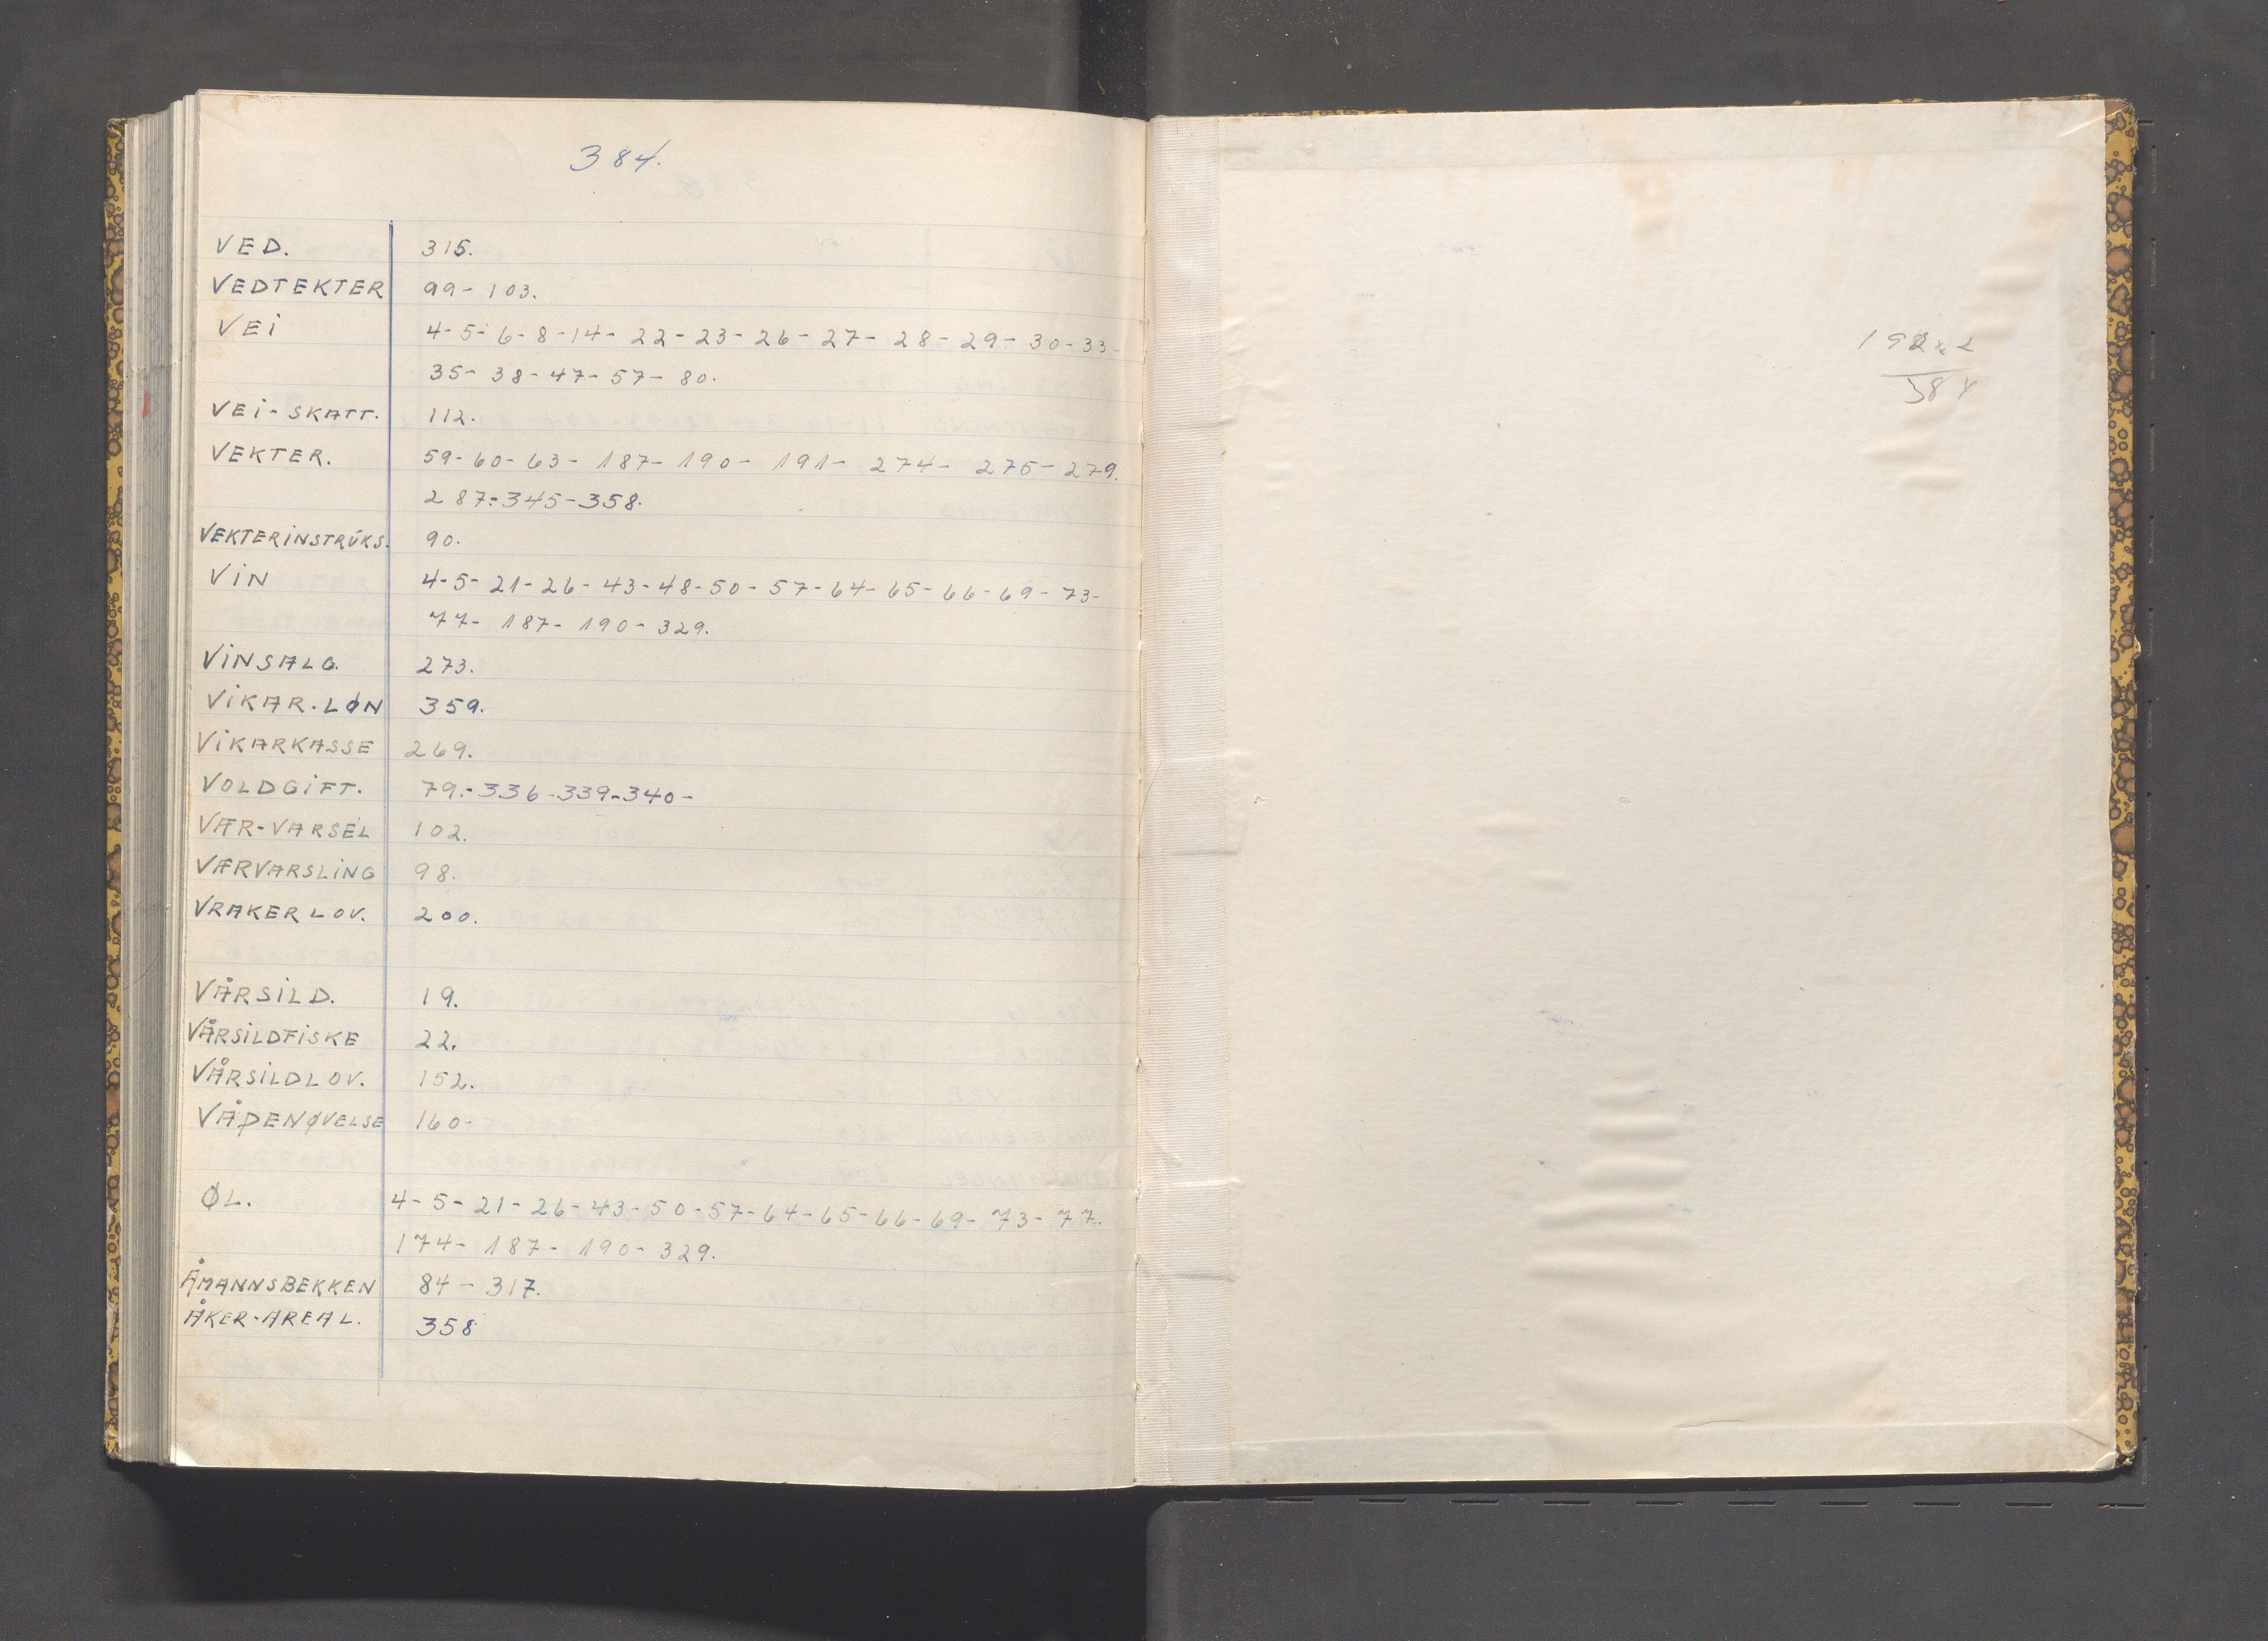 384.
VED. 315.
VEDTEKTER 99- 103.
VEi 4- 5- 6- 8- 14- 22- 23- 26- 27- 28- 29- 30- 33-
35- 38- 47- 57- 80.
VEi- SKATT. 112.
VEKTER. 59- 60- 63- 187- 190- 191- 274- 275- 279.
287.-345-358.
VEKTERiNSTRŬKS. 90.
ViN 4-5- 21- 26- 43- 48- 50- 57- 64- 65- 66- 69- 73-
77- 187- 190- 329.
ViNSALG. 273.
ViKAR. LØN 359.
ViKARKASSE 269.
VOLDGiFT. 79.-336-339-340-
VÆR-VARSEL 102.
VÆRVARSLiNG 98.
VRAKERLOV. 200.
VÅRSiLD. 19.
VÅRSiLDFiSKE 22.
VÅRSiLDLOV. 152.
VÅPENØVELSE 160-
ØL. 4- 5- 21- 26- 43- 50- 57- 64- 65- 66- 69- 73- 77.
174- 187- 190- 329.
ÅMANNSBEKKEN 84 - 317.
ÅKER-AREAL. 358
192 x 2
384